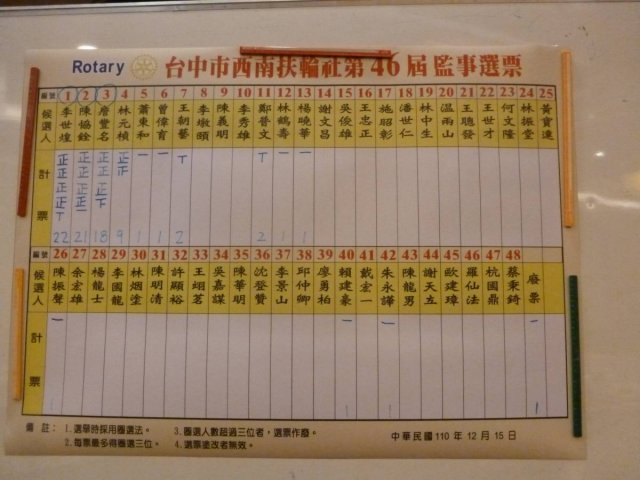 Rotary 台中市西南扶輪社第46屆監事選票
編號 1 2 3 4 5 6 7 8 9 10 11 12 13 14 15 16 17 18 19 20 21 22 23 24 25
候選人 李世煌 陳協銓 詹豐名 林元楨 蕭東和 曾偉育 王朝藝 李墩頤 陳義明 李秀雄 鄭晉文 林鶴壽 楊曉華 謝文昌 吳俊雄 王忠正 施昭彰 潘世仁 林中生 温雨山 王聰發 王世才 何文隆 林振堂 黃寶達
計票 正正正正丅 正正正正一 正正正下 正正 一 一 丅 丅 一 一
22 21 18 9 1 1 2 2 1 1
編號 26 27 28 29 30 31 32 33 34 35 36 37 38 39 40 41 42 43 44 45 46 47 48 廢票
候選人 陳振聲 余宏雄 楊龍士 李國龍 林烟塗 陳明清 許顯裕 王翊茗 吳嘉謀 陳華明 沈登贊 李景山 邱仲卿 廖勇柏 賴建豪 戴宏一 朱永譁 陳龍男 謝天立 歐建璋 羅仙法 杭國鼎 蔡秉錡
計票 一 一 一 一
1 1 1 1
備註： 1.選舉時採用圈選法。 3.圈選人數超過三位者，選票作廢。
2.每票最多得圈選三位。 4.選票塗改者無效。
中華民國110年12月15日